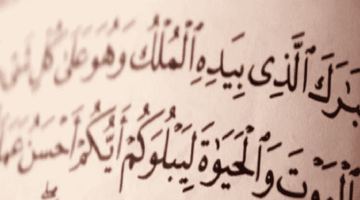 بَٰرَكَ ٱلَّذِى بِيَدِهِ ٱلْمُلْكُ وَهُوَ عَلَىٰ كُلِّ
ٱلْمَوْتَ وَٱلْحَيَوٰةَ لِيَبْلُوَكُمْ أَيُّكُمْ أَحْسَنُ عَمَلًا